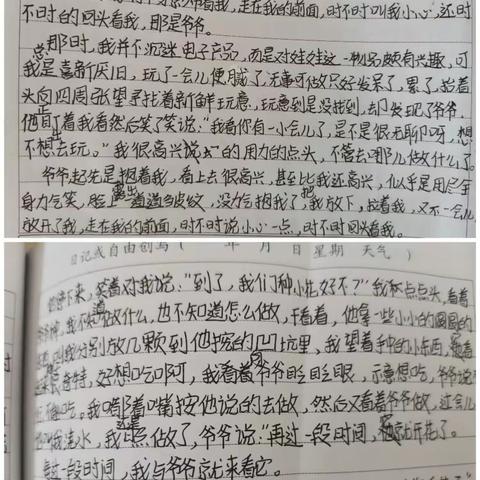 着我,走在我的前面,时不时叫我小心,还时
不时的回头看我,那是爷爷。
总那时,我并不沉迷电子产品,而是对娃娃这一物品颇有兴趣,可
我是喜新厌旧,玩了一会儿便腻了,无事可做只好发呆了,累了,抬着
头向四周张望寻找着新鲜玩意,玩意到是没找到,却发现了爷爷,
他正盯着我看然后笑了笑说:“我看你有一小会儿了,是不是很无聊呀,想
不想出去玩。”我很高兴说的用力的点头,不管去哪儿做什么了。
爷爷起先是抱着我,看上去很高兴,甚至比我还高兴,似乎是用尽全
身力气笑,脸上露出一道道皱纹,没力气抱我了,把我放下,拉着我,又不一会儿
放开了我,走在我的前面,时不时说小心一点,时不时回头看我。
日记或自由创写( 年 月 日 星期 天气 )
下来,笑着对我说:“到了,我们种小花好不?”我点点头,看着
我不知道做什么,也不知道怎么做,干看着,他拿一些小小的圆圆的
让我分别放几颗到他挖的凹坑里,我望着手中的小东西,
奇特,好想吃啊,我看着爷爷眨眨眼,示意想吃,爷爷说
不能吃。我嘟着嘴按他说的去做,然后又看着爷爷做,过会儿
叫我浇水,我照做了,爷爷说:“再过一段时间,就开花了。
过一段时间,我与爷爷就来看它。